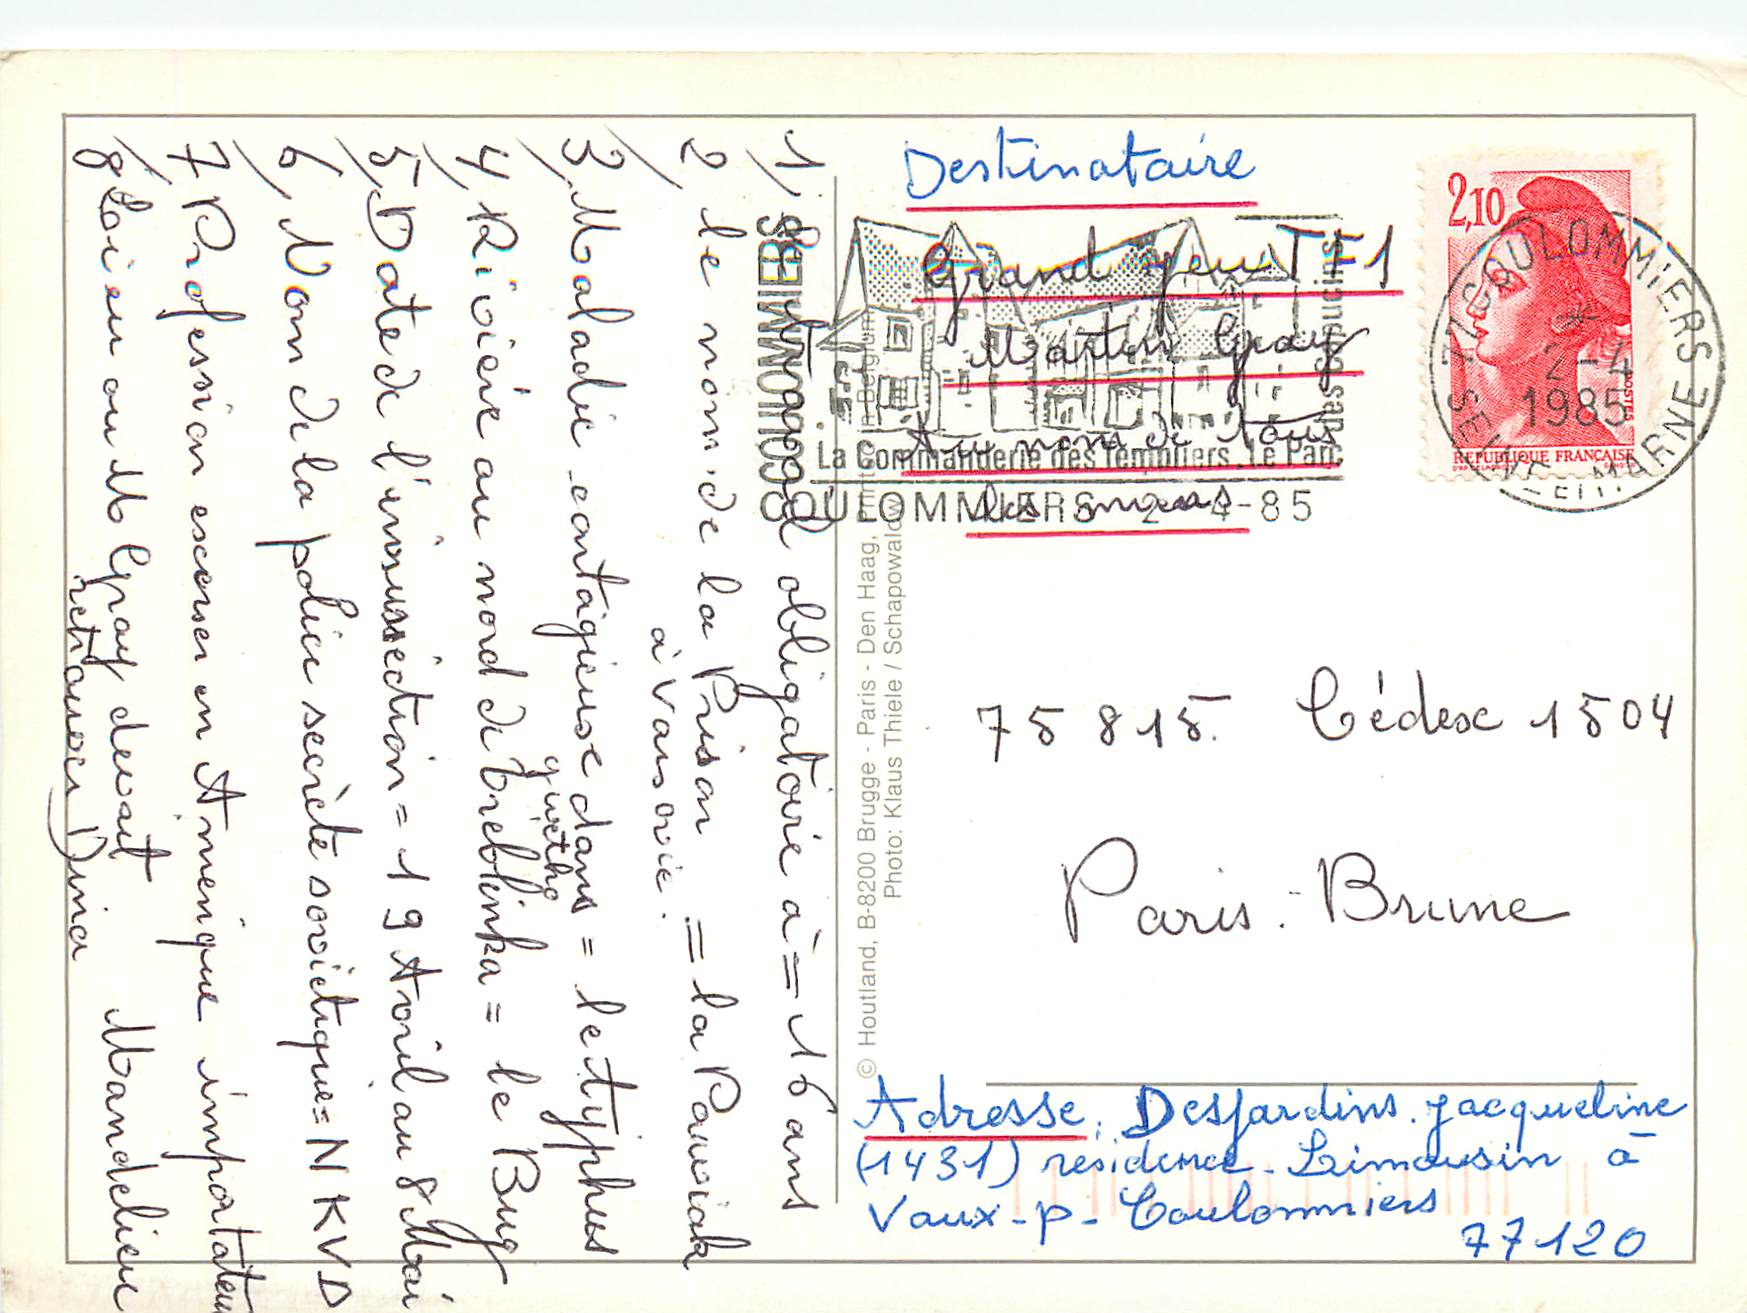 1/ Le travail obligatoire à = 16 ans
2/ le nom de la Prison = la Pawiak
à Varsovie.
3/ Maladie contagieuse dans = le typhus
guetho
4/ Rivière au nord de treblinka = le Bug
5/ Date de l'insurrection = 19 Avril au 8 Mai
6/ Nom de la police secrète soviétique = NKVD
7 Profession exercer en Amérique importateur
8/ Lieu ou M Gray devait Mandelieu
retrouver Dina
Destinataire
Grand Jeu TF1
Martin Gray
Au nom de tous
les miens
75 815. Cédex 1504
Paris. Brune
Adresse, Desjardins. Jacqueline
(1431) résidence - Limousin à
Vaux-p-Coulommiers
77120
2,10
RÉPUBLIQUE FRANÇAISE
POSTES
77 COULOMMIERS
* 2-4
1985
SEINE-ET-MARNE
COULOMMIERS
La Commanderie des Templiers. Le Parc
des Capucins
COULOMMIERS 2-4-85
© Houtland, B-8200 Brugge - Paris - Den Haag, Printed in Belgium
Photo: Klaus Thiele / Schapowalow